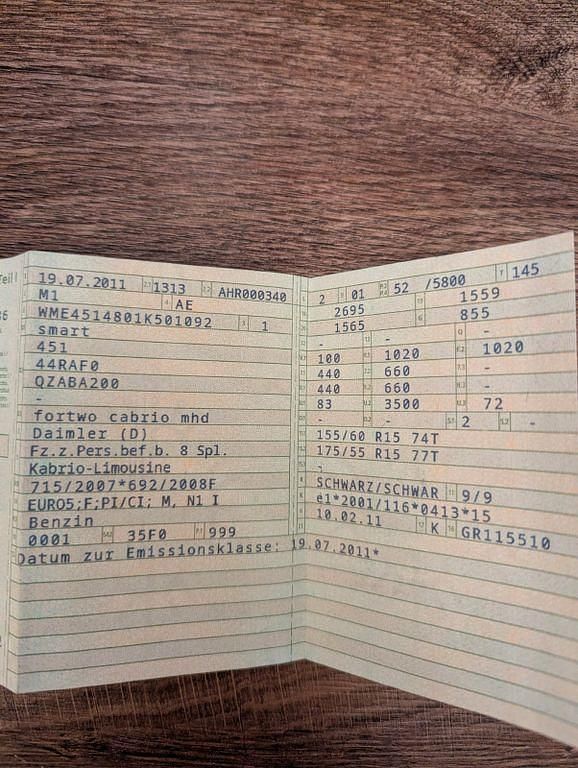 Teil I
19.07.2011 2.1 1313 2.2 AHR000340
M1 4 AE
WME4514801K501092 3 1
smart
451
44RAF0
QZABA200
-
fortwo cabrio mhd
Daimler (D)
Fz.z.Pers.bef.b. 8 Spl.
Kabrio-Limousine
715/2007*692/2008F
EURO5;F;PI/CI; M, N1 I
Benzin
0001 35F0 P.1 999
Datum zur Emissionsklasse: 19.07.2011*
2 9 01 P.2 P.4 52 /5800 T 145
2695 1559
1565 855
- - Q -
100 1020 1020
440 660 -
440 660 -
83 3500 72
- - S.1 2 S.2 -
155/60 R15 74T
175/55 R15 77T
-
SCHWARZ/SCHWAR 11 9/9
e1*2001/116*0413*15
10.02.11 17 K 16 GR115510